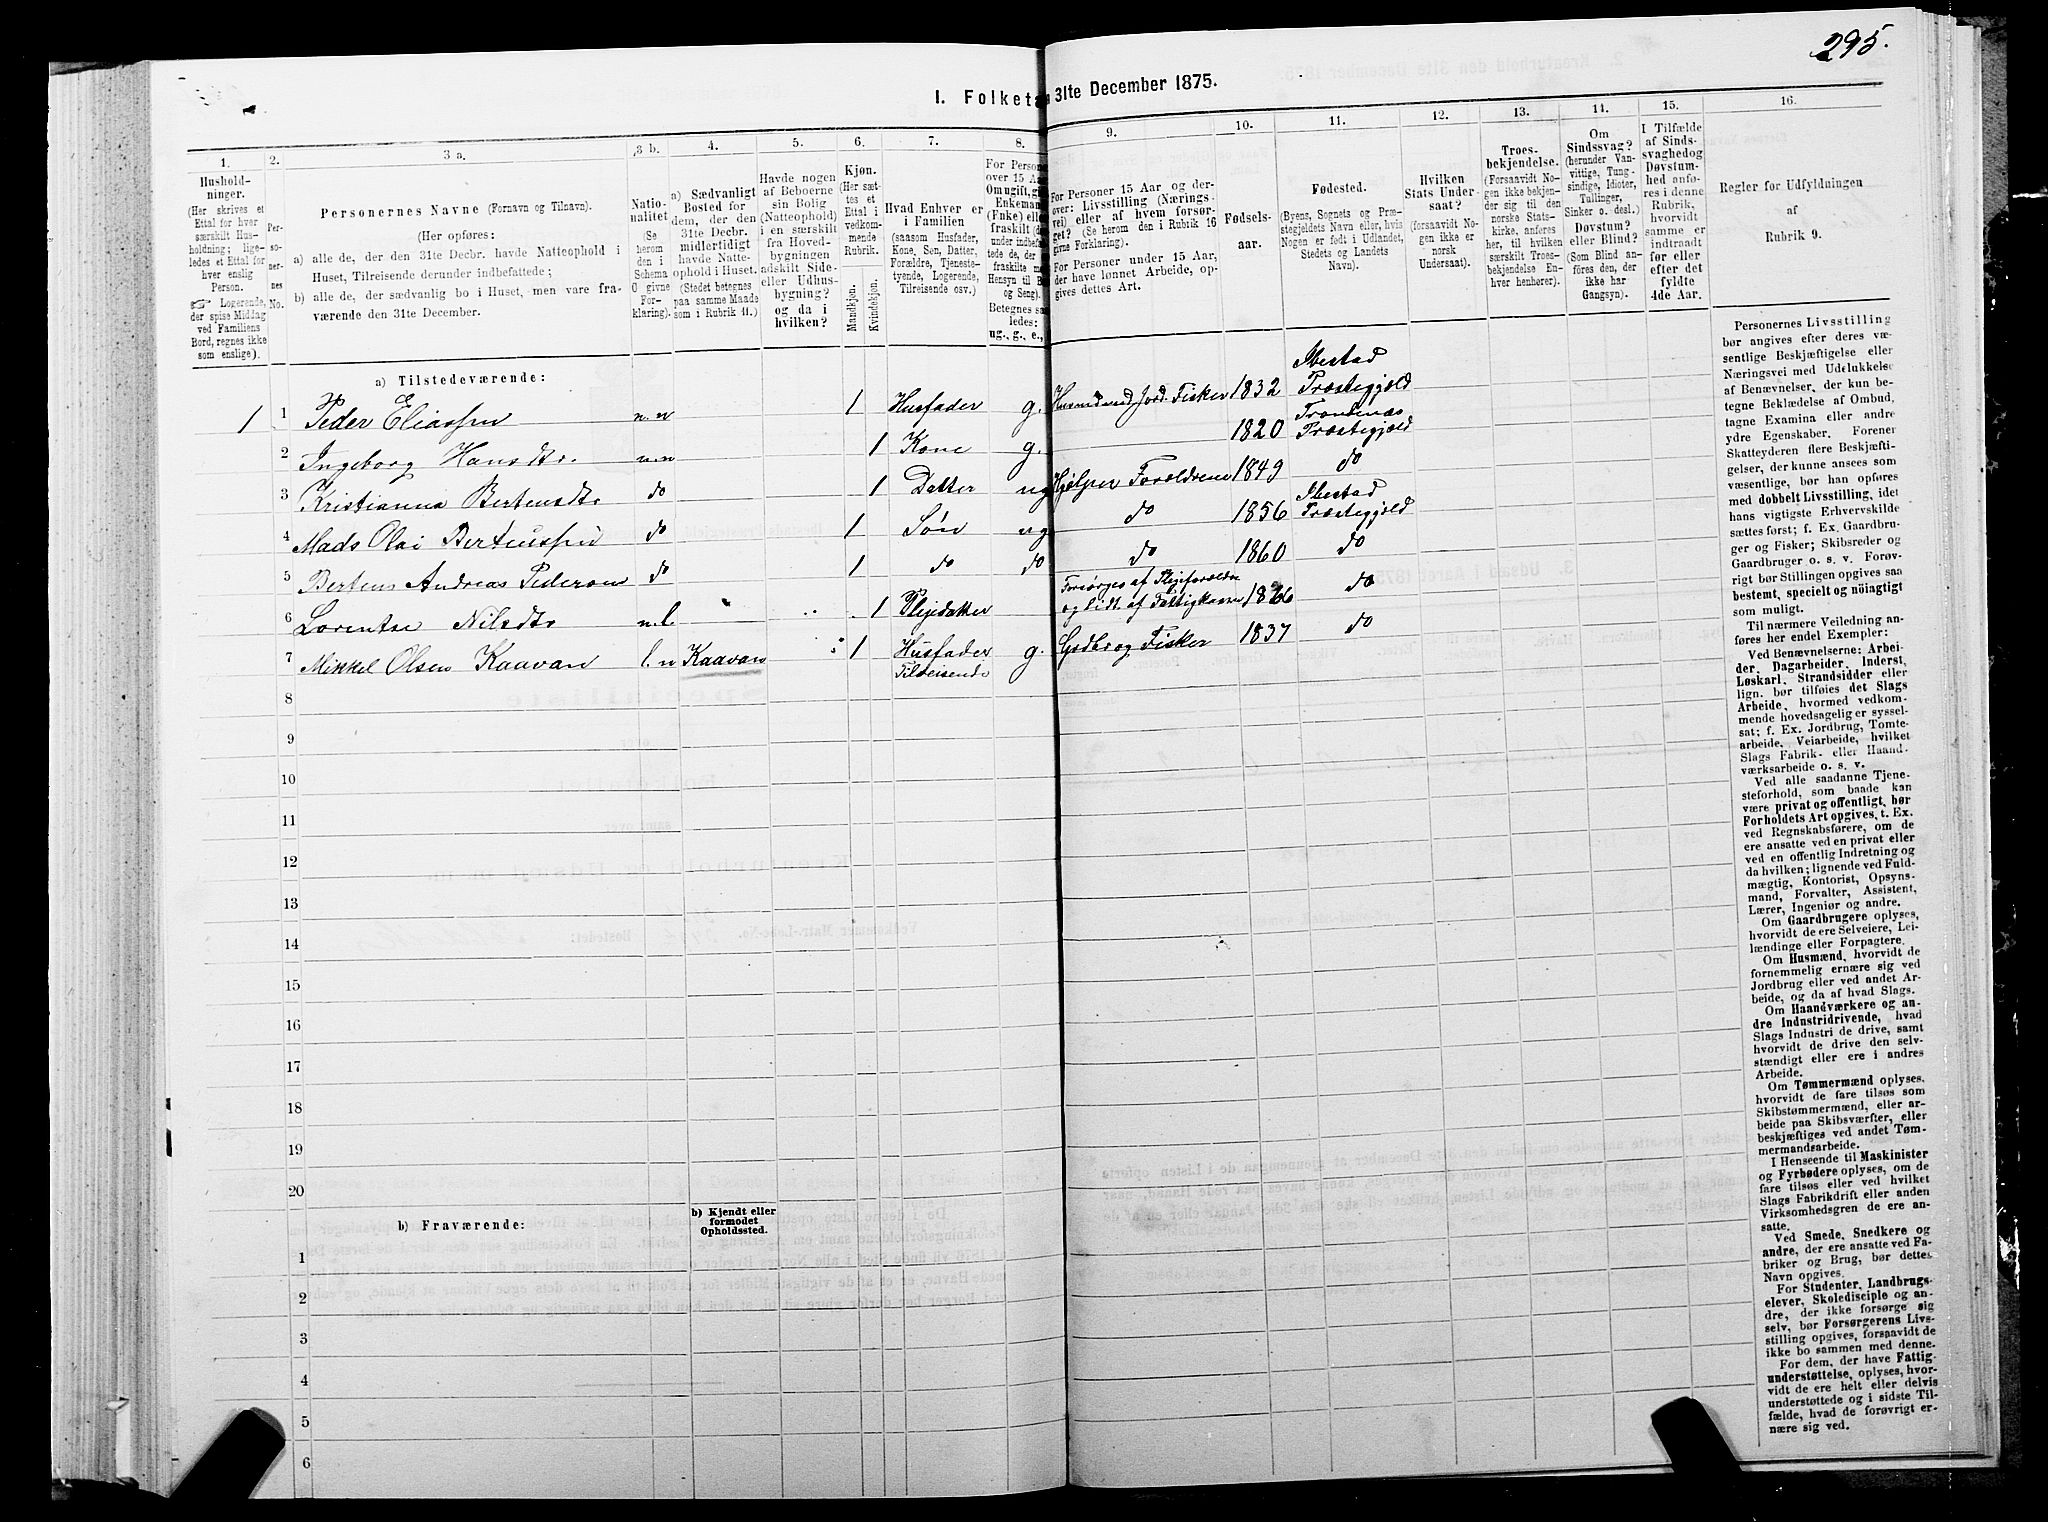 295.
I. Folketæ 31te December 1875.
1.
2.
3 a.
3 b.
4.
5.
6.
7.
8.
9.
10.
11.
12.
13.
14.
15.
16.
Hushold-
ninger.
(Her skrives et
Ettal for hver
særskilt Hus-
holdning; lige-
ledes et Ettal for
hver enslig
Person.
☞ Logerende,
der spise Middag
ved Familiens
Bord, regnes ikke
som enslige).
Per-
so-
ner-
nes
No.
Personernes Navne (Fornavn og Tilnavn).
(Her opføres:
a) alle de, der den 31te Decbr. havde Natteophold i
Huset, Tilreisende derunder indbefattede;
b) alle de, der sædvanlig bo i Huset, men vare fra-
værende den 31te December.
Natio-
nalitet
(Se
herom
den i
Schema
O givne
For-
klaring).
a) Sædvanligt
Bosted for
dem, der den
31te Decbr.
midlertidigt
havde Natte-
ophold i Huset.
(Stedet betegnes
paa samme Maade
som i Rubrik 11.)
Havde nogen
af Beboerne
sin Bolig
(Natteophold)
i en særskilt
fra Hoved-
bygningen
adskilt Side-
eller Udhus-
bygning?
og da i
hvilken?
Kjøn.
(Her sæt-
tes et
Ettal i
vedkom-
mende
Rubrik.
Mandkjøn.
Kvindekjøn.
Hvad Enhver er
i Familien
(saasom Husfader,
Kone, Søn, Datter,
Forældre, Tjeneste-
tyende, Logerende,
Tilreisende osv.)
For Persone
over 15 Aa
Om ugift, gi
Enkeman
(Enke) elle
fraskilt (d
under indbefa
tede de, de
fraskilte me
Hensyn til B
og Seng).
Betegnes sa
ledes:
ug., g., e.,
For Personer 15 Aar og der-
over: Livsstilling (Nærings-
vei) eller af hvem forsør-
get? (Se herom den i Rubrik 16
givne Forklaring).
For Personer under 15 Aar,
der have lønnet Arbeide, op-
gives dettes Art.
Fødsels-
aar.
Fødested.
(Byens, Sognets og Præ-
stegjeldets Navn eller, hvis
Nogen er født i Udlandet,
Stedets og Landets
Navn).
Hvilken
Stats Under-
saat?
(forsaavidt No-
gen ikke er
norsk
Undersaat).
Troes-
bekjendelse.
(Forsaavidt No-
gen ikke bekjen-
der sig til den
norske Stats-
kirke, anføres
her, til hvilken
særskilt Troes-
bekjendelse En-
hver henhører).
Om
Sindssvag?
(herunder Van-
vittige, Tung-
sindige, Idioter,
Tullinger,
Sinker o. desl.)
Døvstum?
eller Blind?
(Som Blind an-
føres den, der
ikke har
Gangsyn).
I Tilfælde
af Sinds-
svaghed og
Døvstum-
hed anfø-
res i denne
Rubrik,
hvorvidt
samme er
indtraadt
før eller
efter det
fyldte
4de Aar.
Regler for Udfyldningen
af
Rubrik 9.
a) Tilstedeværende:
1 1 Peder Eliassen n.n 1 Husfader g. Husmd med Jord. Fisker 1832 Ibestad Præstegjeld
2 Ingeborg Hansdtr. n.n 1 Kone g. 1820 Trondenæs Præstegjeld
3 Kristianna Bertensdtr do 1 Datter ug Hjelper Forældrene 1849 do
4 Mads Olai Berteussen do 1 Søn ug do 1856 Ibestad Præstegjeld
5 Bertens Andreas Pedersen do 1 do do do 1860 do
6 Lorentse Nilsdtr n.l 1 Pleiedatter Forsørges af Pleiforældre og lidt af Fattigkassen 1866 do
7 Mikkel Olsen Kaavan l.n Kaavan 1 Husfader Tilreisende g. Gydbr og Fisker 1837 do
8
9
10
11
12
13
14
15
16
17
18
19
20
b) Fraværende:
b) Kjendt eller
formodet
Opholdssted.
1
2
3
4
5
6
Personernes Livsstilling
bør angives efter deres væ-
sentlige Beskjæftigelse eller
Næringsvei med Udelukkelse
af Benævnelser, der kun be-
tegne Beklædelse af Ombud,
tagne Examina eller andre
ydre Egenskaber. Forener
Skatteyderen flere Beskjæfti-
gelser, der kunne ansees som
væsentlige, bør han opføres
med dobbelt Livsstilling, idet
hans vigtigste Erhvervskilde
sættes først; f. Ex. Gaardbru-
ger og Fisker; Skibsreder og
Gaardbruger o. s. v. Forøv-
rigt bør Stillingen opgives saa
bestemt, specielt og nöiagtigt
som muligt.
Til nærmere Veiledning an-
føres her endel Exempler:
Ved Benævnelserne: Arbei-
der, Dagarbeider, Inderst,
Løskarl, Strandsidder eller
lign. bør tilføies det Slags
Arbeide, hvormed vedkom-
mende hovedsagelig er syssel-
sat; f. Ex. Jordbrug, Tomte-
arbeide, Veiarbeide, hvilket
Slags Fabrik- eller Haand-
værksarbeide o. s. v.
Ved alle saadanne Tjene-
steforhold, som baade kan
være privat og offentligt, bør
Forholdets Art opgives, t. Ex.
ved Regnskabsførere, om de
ere ansatte ved en privat eller
ved en offentlig Indretning og
da hvilken; lignende ved Fuld-
mægtig, Kontorist, Opsyns-
mand, Forvalter, Assistent,
Lærer, Ingeniør og andre.
Om Gaardbrugere oplyses,
hvorvidt de ere Selveiere, Lei-
lændinge eller Forpagtere.
Om Husmænd, hvorvidt de
fornemmelig ernære sig ved
Jordbrug eller ved andet Ar-
beide, og da af hvad Slags.
Om Haandværkere og an-
dre Industridrivende, hvad
Slags Industri de drive, samt
hvorvidt de drive den selv-
stændigt eller ere i andres
Arbeide.
Om Tømmermænd oplyses,
hvorvidt de fare tilsøs som
Skibstømmermænd, eller ar-
beide paa Skibsværfter, eller
beskjæftiges ved andet Tøm-
mermandsarbeide.
I Henseende til Maskinister
og Fyrbødere oplyses, om de
fare tilsøs eller ved hvilket
Slags Fabrikdrift eller anden
Virksomhedsgren de ere an-
satte.
Ved Smede, Snedkere og
andre, der ere ansatte ved Fa-
briker og Brug, bør dettes
Navn opgives.
For Studenter, Landbrugs-
elever, Skoledisciple og an-
dre, der ikke forsørge sig
selv, bør Forsørgerens Livs-
stilling opgives, forsaavidt de
ikke bo sammen med denne.
For dem, der have Fattig-
understøttelse, oplyses, hvor-
vidt de ere helt eller delvis
understøttede og i sidste Til-
fælde, hvad de forøvrigt er-
nære sig ved.